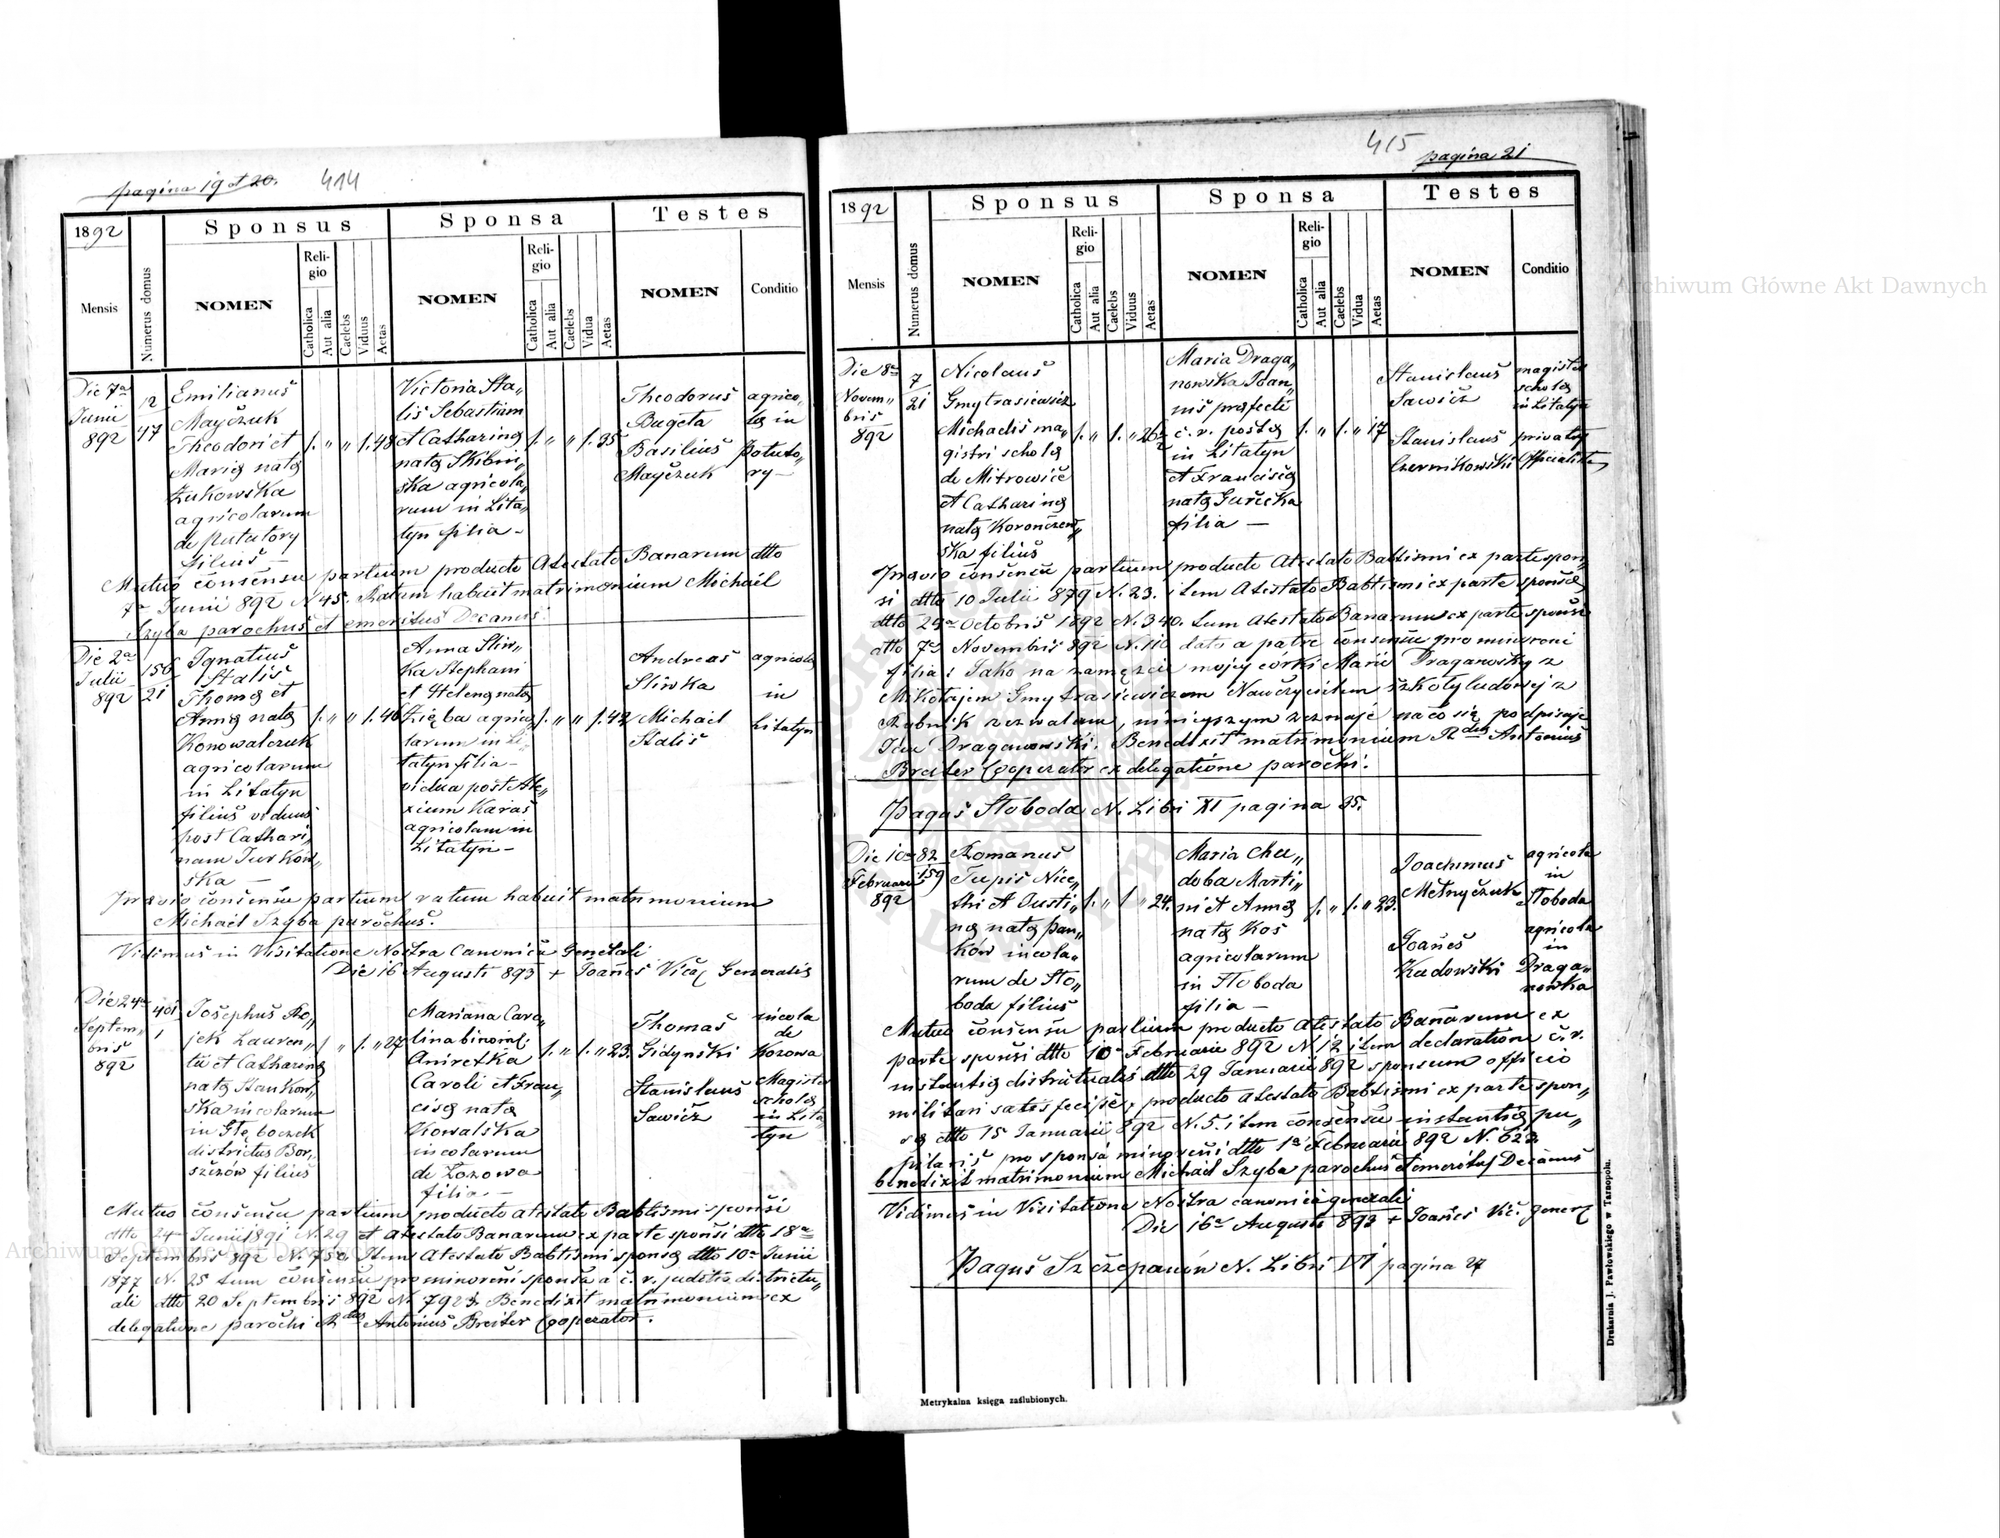 pagina 19 et 20.
414
1892
Numerus domus
Sponsus
Sponsa
Testes
Mensis
NOMEN
Religio
Catholica
Aut alia
Caelebs
Viduus
Aetas
NOMEN
Religio
Catholica
Aut alia
Caelebs
Vidua
Aetas
NOMEN
Conditio
Die 7a
Junii
892
12
47
Emilianus
Mayczuk
Theodori et
Mariae natae
Żukowska
agricolarum
de Pututory
filius
1. " " 1. 48
Victoria Sta„
lis Sebastiani
et Catharinae
natae Skibni„
ska agricola„
rum in Lita„
tyn filia –
1. " " 1. 35
Theodorus
Bugeta
Basilius
Mayczuk
agrico„
lae in
Potuto„
ry –
Mutuo consensu partium producto Atestato Banarum dtto
7a Junii 892 N 45. Ratum habuit matrimonium Michaël
Szyba parochus et emeritus Decanus.
Die 2a
Julii
892
156
21
Ignatius
Stalis
Thomae et
Annae natae
Konowalczuk
agricolarum
in Litatyn
filius viduus
post Cathari„
nam Jurkow„
ska –
1. " " 1. 46
Anna Sliw„
ka Stephani
et Helenae natae
Zięba agrico„
larum in Li„
tatyn filia –
vidua post Ale„
xium Karas
agricolam in
Litatyn –
1. " " 1. 42
Andreas
Sliwka
Michael
Stalis
agricolae
in
Litatyn
Praevio consensu partium ratum habuit matrimonium
Michaël Szyba parochus.
Vidimus in Visitatione Nostra Canonica Generali
Die 16 Augusti 893 + Joanes Vica Generalis
Die 24a
Septem„
bris
892
401
1
Josephus Ro„
jek Lauren„
tii et Catharinae
natae Stankow„
ska incolarum
in Głęboczek
districtus Bor„
szczów filius
1 " 1. " 27
Mariana Caro„
lina binominl.
Aniretka
Caroli et Fran„
ciscae natae
Kowalska
incolarum
de Kozowa
filia –
1. " 1. " 23.
Thomas
Gidyński
Stanislaus
Sawicz
incola
de
Kozowa
Magister
scholae
in Lita„
tyn
Mutuo consensu partium producto atestato Babtismi sponsi
dtto 24 Junii 1891 N. 29 et atestato Banarum ex parte sponsi dtto 18a
Septembris 892 N. 750. Item Atestato Babtismi sponsae dtto 10a Junii
1877 N. 25 tum consensu pro minoreni sponsa a c. r. judicio districtu„
ali dtto 20 Septembris 892 N. 7923. Benedixit matrimonium ex
delegatione parochi Rdus Antonius Breiter Cooperator.
415
pagina 21
1892
Numerus domus
Sponsus
Sponsa
Testes
Mensis
NOMEN
Religio
Catholica
Aut alia
Caelebs
Viduus
Aetas
NOMEN
Religio
Catholica
Aut alia
Caelebs
Vidua
Aetas
NOMEN
Conditio
Die 8a
Novem„
bris
892
7
21
Nicolaus
Gmytrasiewicz
Michaelis ma„
gistri scholae
de Mitrowice
et Catharinae
natae Koronczew„
ska filius
1. " 1. " 26
Maria Draga„
nowska Joan„
nis praefecti
c. r. postae
in Litatyn
et Franciscae
natae Gurecka
filia –
1. " 1. " 17
Stanislaus
Sawicz
Stanislaus
Czernikowski
magister
scholae
in Litatyn
privatus
Officialista
Praevio consensu partium producto Atestato Babtismi ex parte spon„
si dtto 10 Julii 879 N. 23. item Atestato Babtismi ex parte sponsae
dtto 24a Octobris 1892 N. 340. tum Atestato Banarum ex parte sponsi
dtto 7a Novembris 892 N. 110 dato a patre consensu pro minoreni
filia: Jako na zamęzcie mojej córki Marii Draganowskiej z
Mikołajem Gmytrasiewiczem Nauczycielem szkoły ludowej z
Rybnik zezwalam, niniejszym zeznaję na co się podpisuję
Jan Draganowski. Benedixit matrimonium Rdus Antonius
Breiter Cooperator ex delegatione parochi.
Pagus Słoboda N. Libri XI pagina 35.
Die 10a
Februarii
892
82
159
Romanus
Tupis Nice„
thi et Justi„
nae natae Pan„
ków incola„
rum de Sło„
boda filius
1. " 1 " 24.
Maria Chu„
doba Marti„
ni et Annae
natae Kos
agricolarum
in Słoboda
filia –
1. " 1. " 23.
Joachimus
Melnyczuk
Joanes
Kudowski
agricola
in
Słoboda
agricola
in
Draga„
nowka
Mutuo consensu partium producto atestato Banarum ex
parte sponsi dtto 10 Februarii 892 N. 12 item declaratione c. r.
instantiae districtualis dtto 29 Januarii 892 sponsum officio
militari satisfecisse, producto atestato Babtismi ex parte spon„
sae dtto 15 Januarii 892 N. 5. item consensu instantiae pu„
pilaris pro sponsa minoreni dtto 1a Februarii 892 N. 623
benedixit matrimonium Michaël Szyba parochus et emeritus Decanus
Vidimus in Visitatione Nostra canonica generali
Die 16a Augusti 893 + Joanes Vic. general
Pagus Szczepanów N. Libri VI pagina 27
Metrykalna księga zaślubionych.
Drukarnia J. Pawłowskiego w Tarnopolu.
Archiwum Główne Akt Dawnych
Archiwum Główne Akt Dawnych